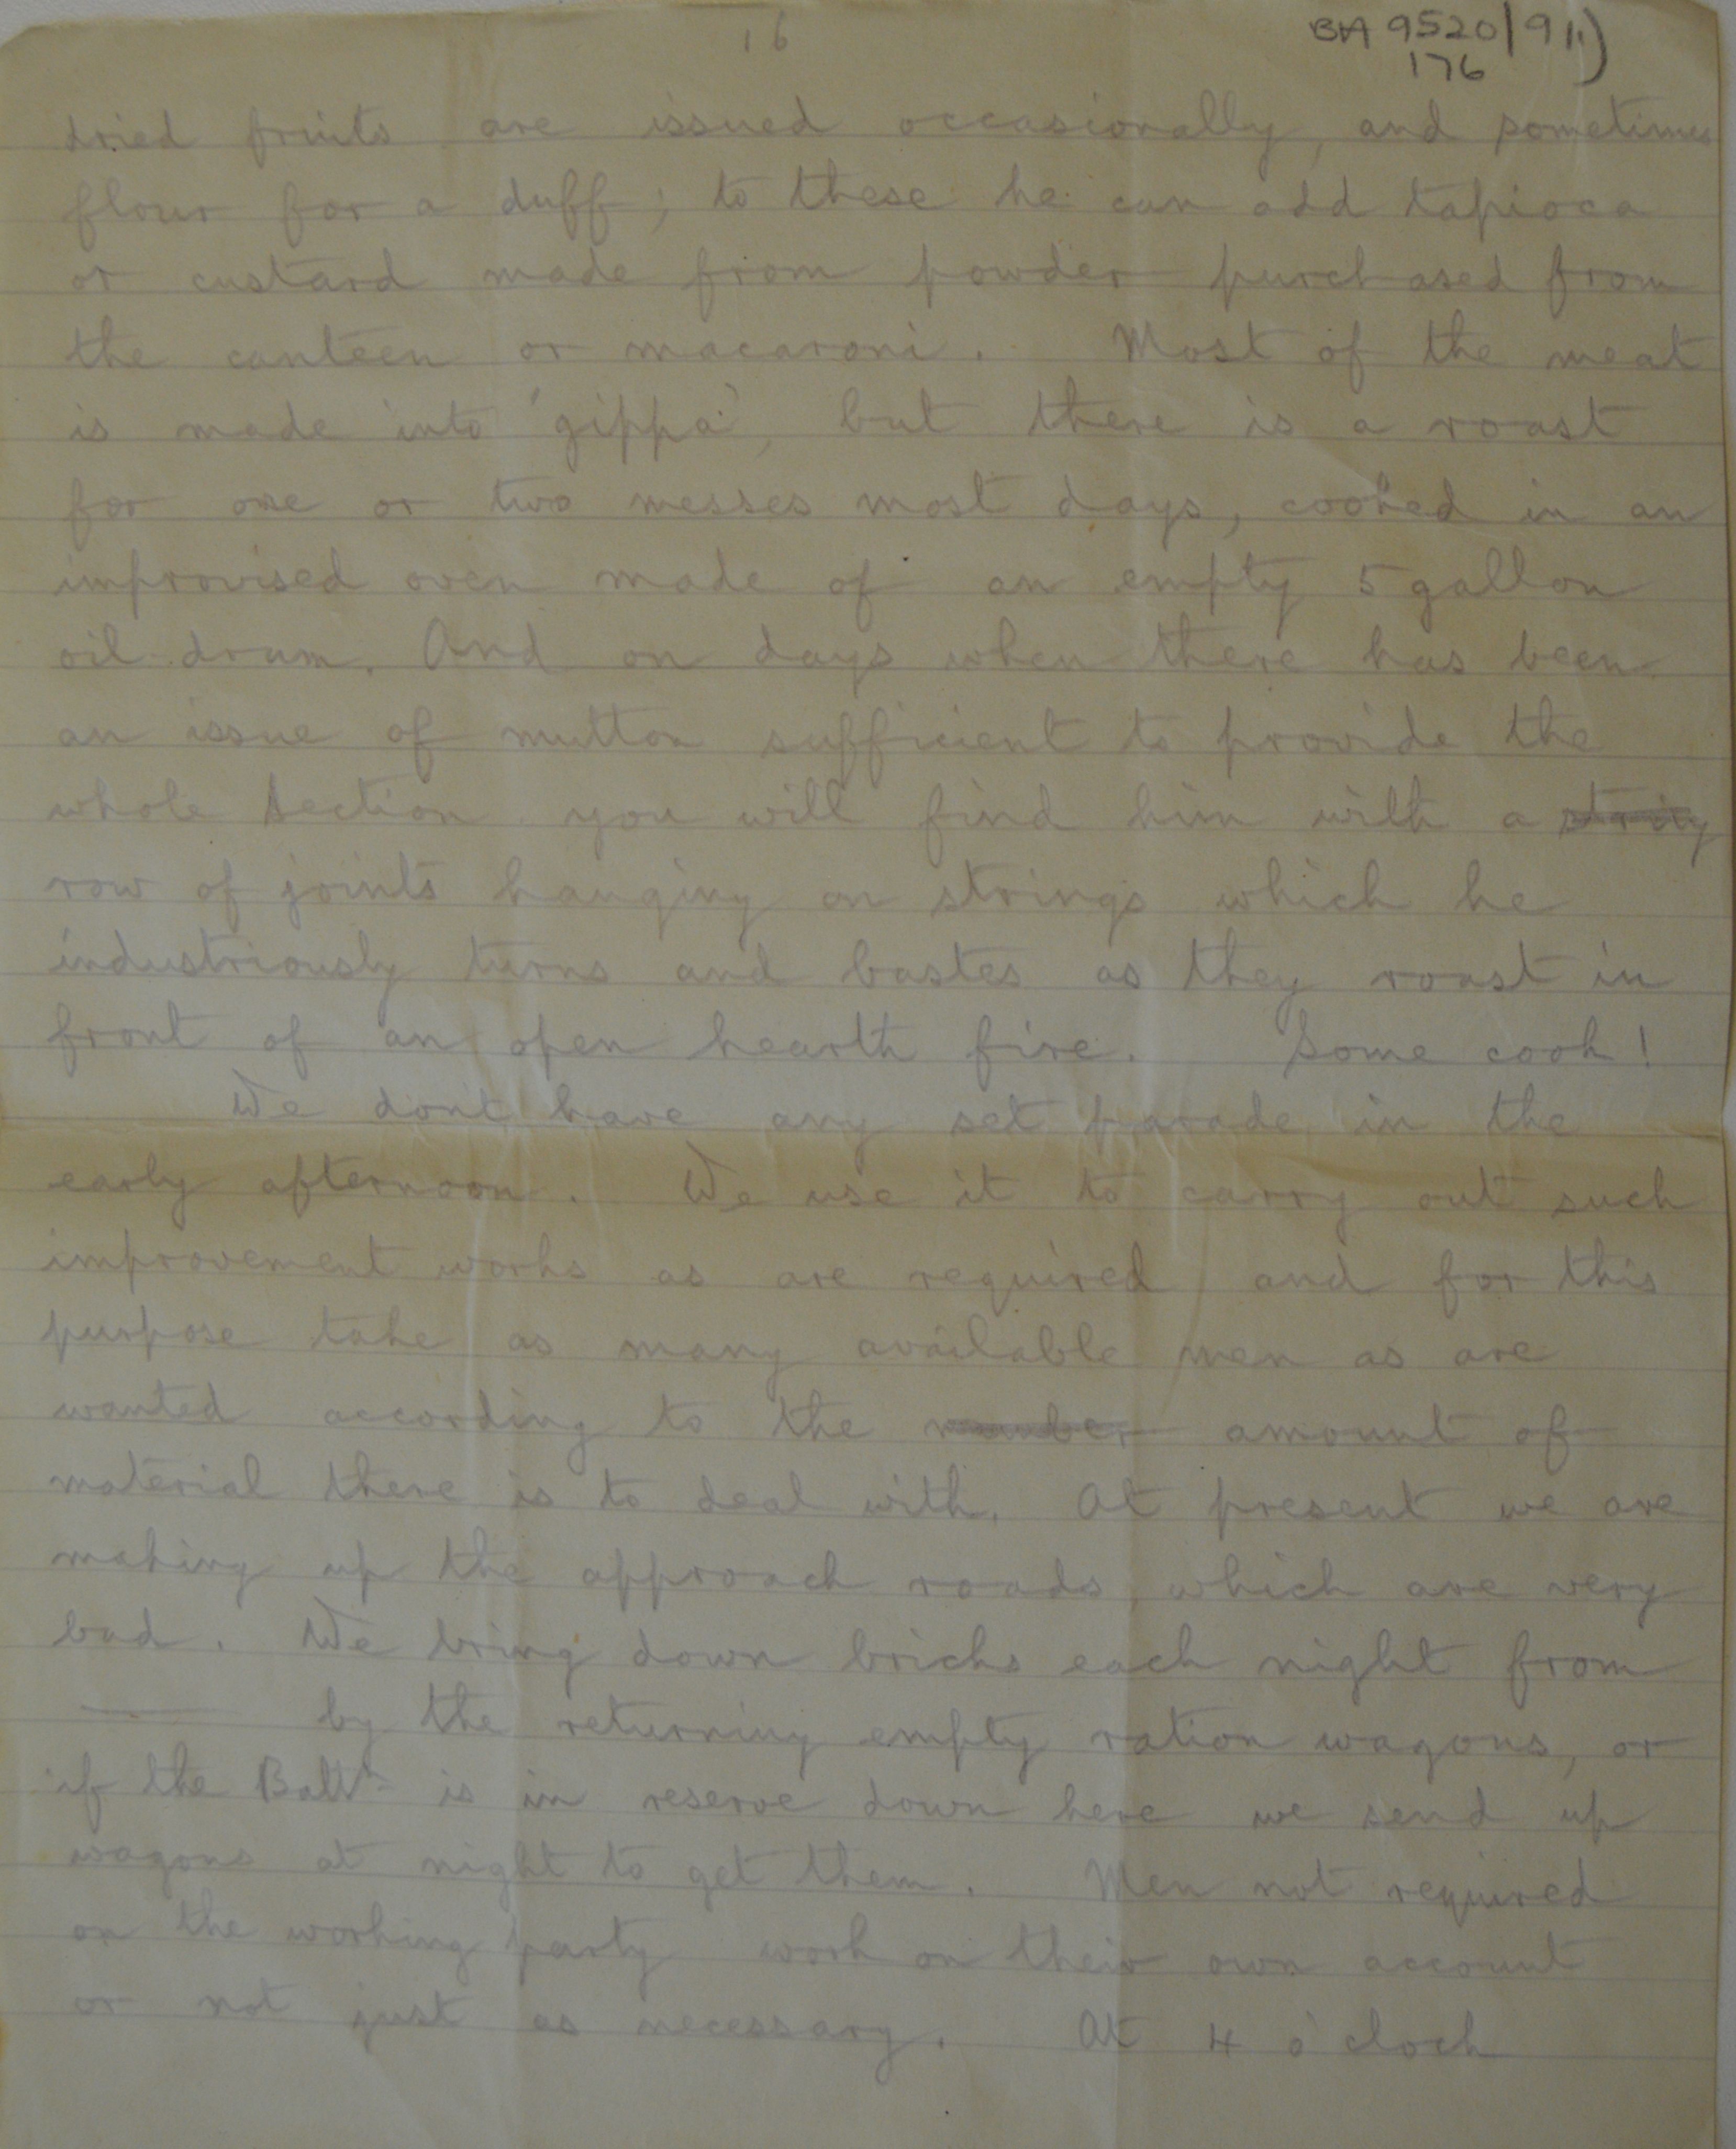 16
BA 9520/9 11)
176
dried fruits are issued occasionally, and sometimes
flour for a duff; to these he can add tapioca
or custard made from powder purchased from
the canteen or macaroni. Most of the meat
is made into 'gippo', but there is a roast
for one or two messes most days, cooked in an
improvised oven made of an empty 5 gallon
oil drum. And on days when there has been
an issue of mutton sufficient to provide the
whole section you will find him with a string
row of joints hanging on strings which he
industriously turns and bastes as they roast in
front of an open hearth fire. Some cook!
We don't have any set parade in the
early afternoon. We use it to carry out such
improvement works as are required and for this
purpose take as many available men as are
wanted according to the number amount of
material there is to deal with. At present we are
making up the approach roads, which are very
bad. We bring down bricks each night from
—— by the returning empty ration wagons, or
if the Battn is in reserve down here we send up
wagons at night to get them. Men not required
on the working party work on their own account
or not just as necessary. At 4 o'clock